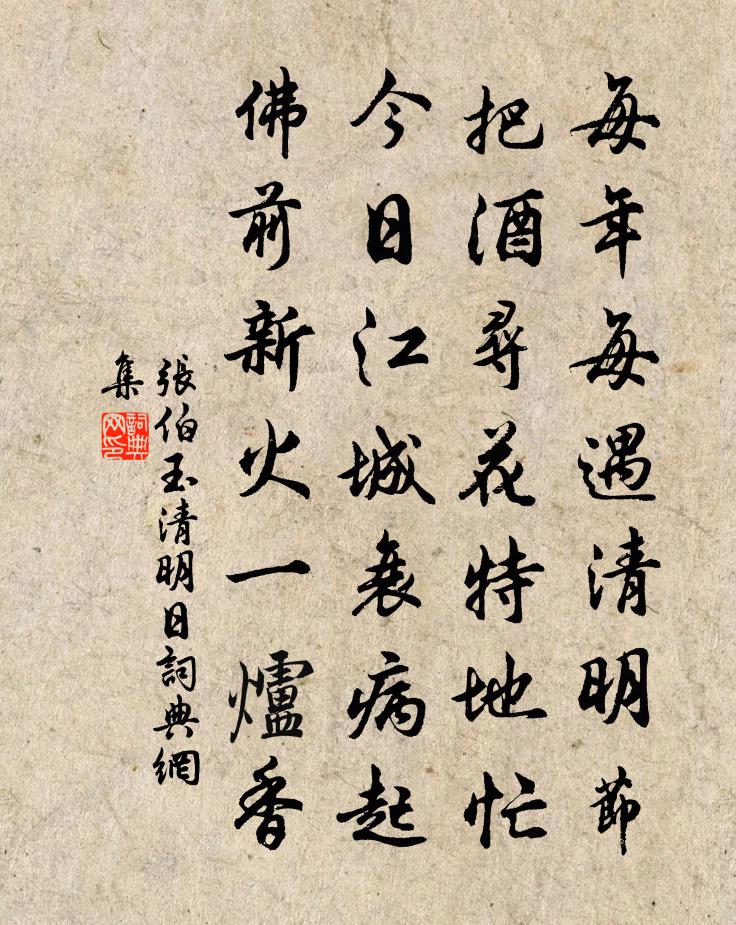 每年每遇清明節
把酒尋花特地忙
今日江城衰病起
佛前新火一爐香
張伯玉清明日詞典網
集
詞典
网印